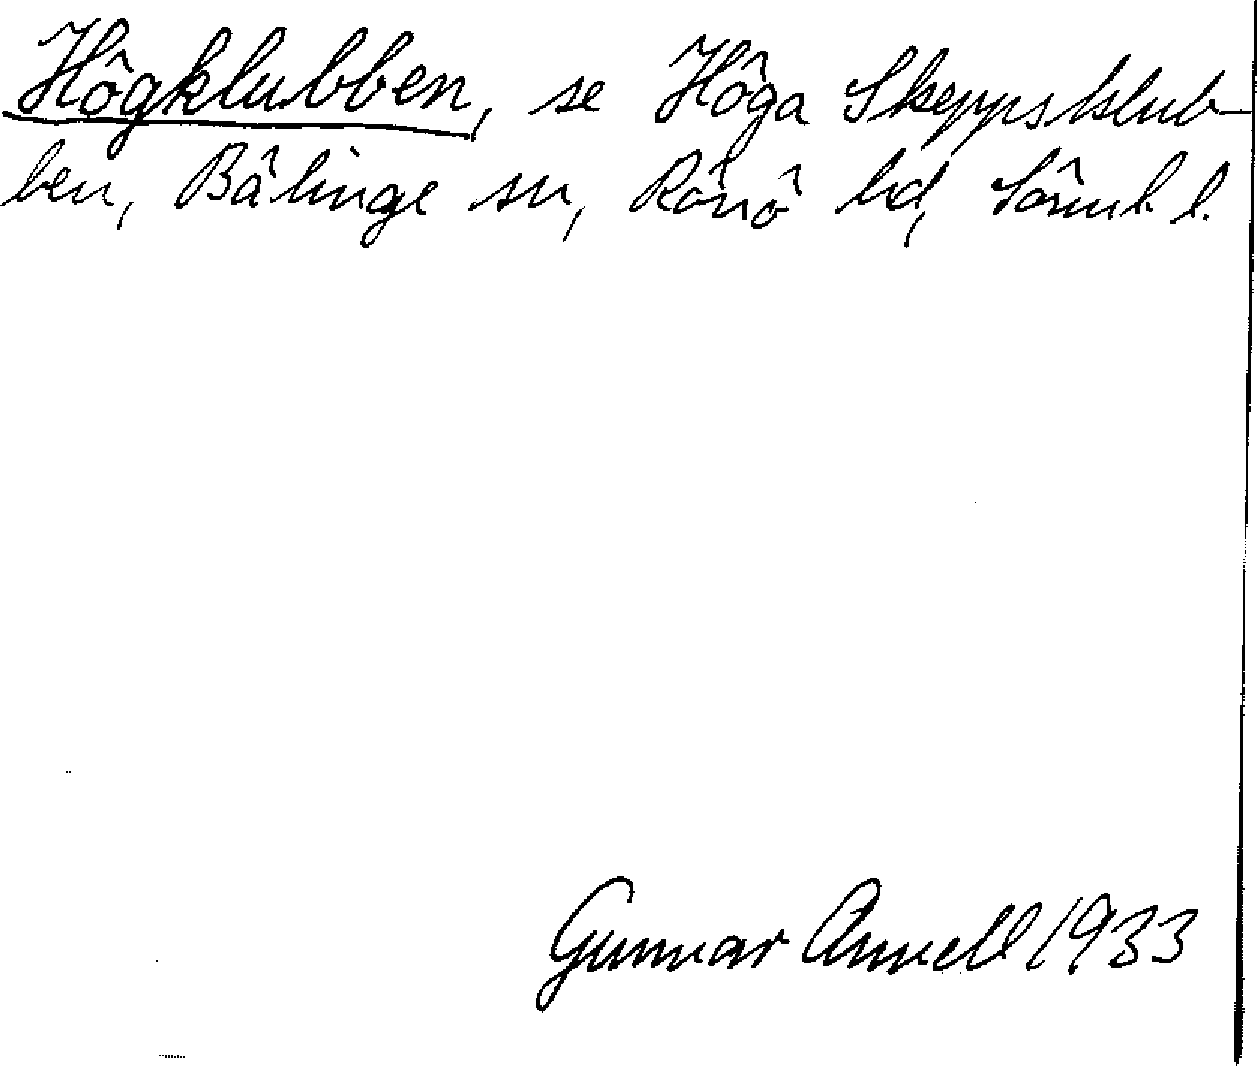 Högklubben, se Höga Skeppsklub-
ben, Bälinge sn, Rönö hd, Söderm. l.
Gunnar Annell 1933